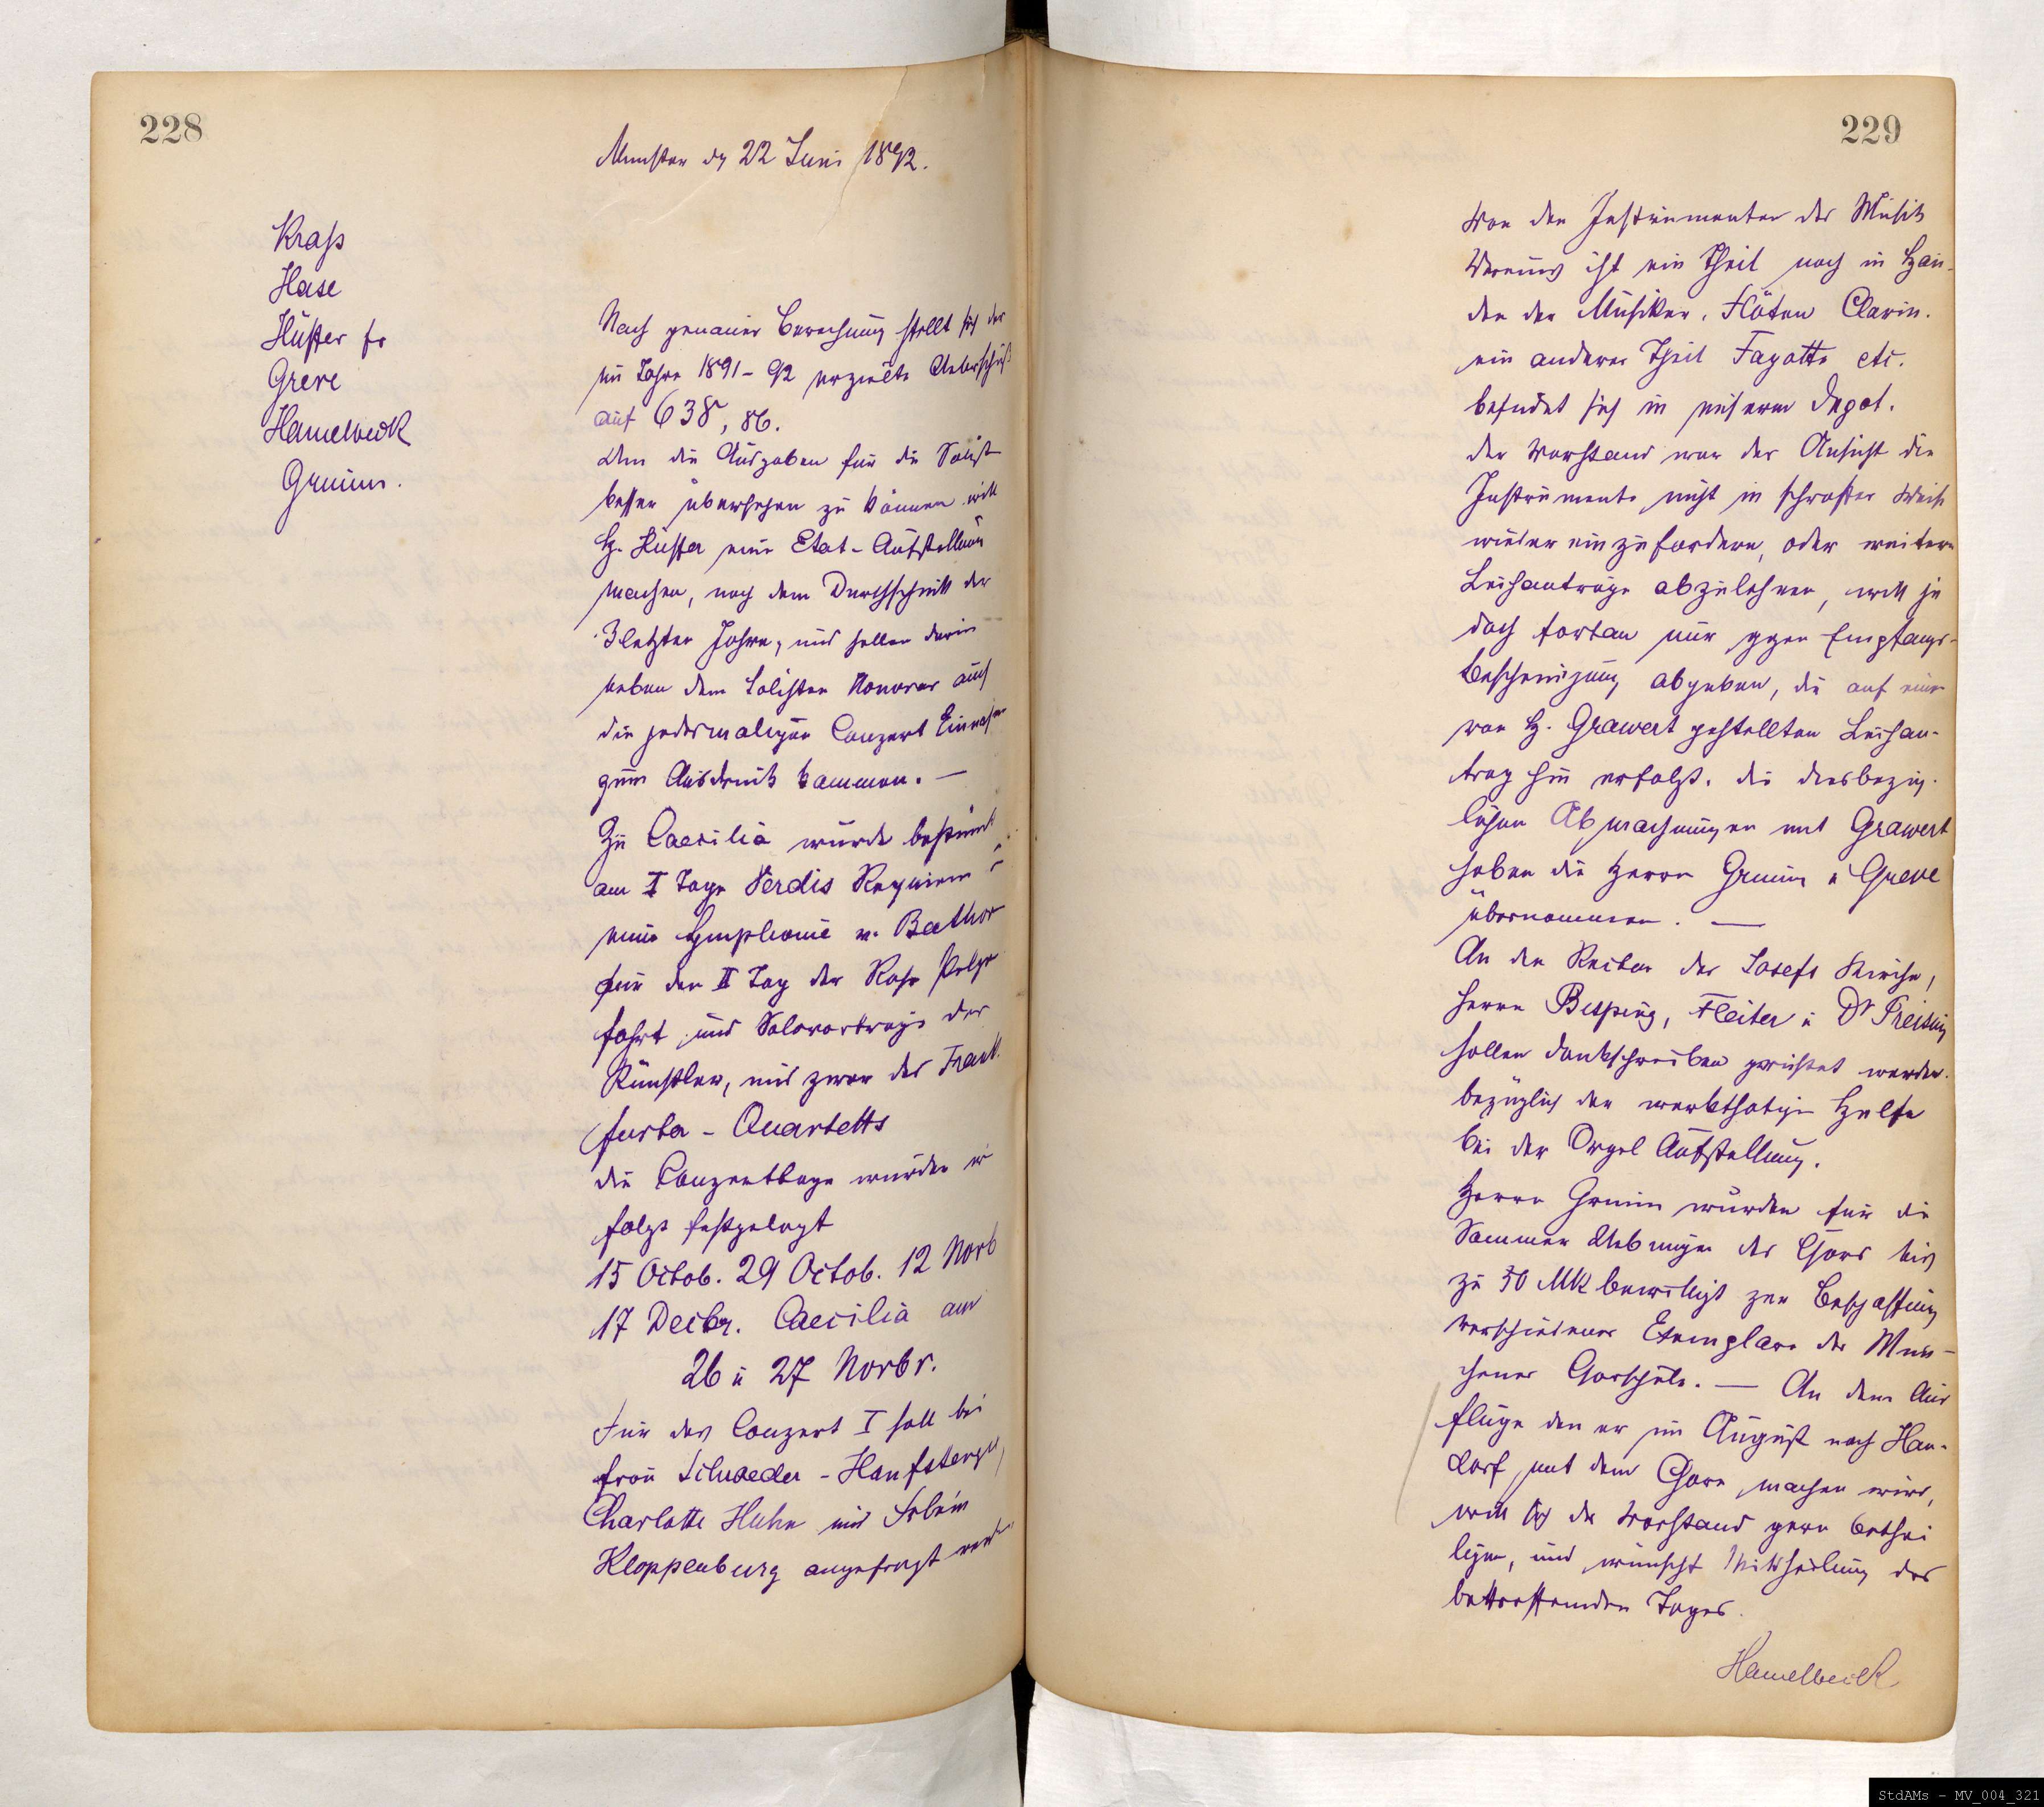 228
Munster den 22 Juni 1892.
Krass
Hase
Hüffer fr
Greve
Hamelbeck
Grimm.
Nach genauer Berechnung stellt sich der
im Jahre 1891-92 erzielte Ueberschuß
auf 638,86.
Um die Ausgaben für die Solist
besser übersehen zu können will
H. Hüffer eine Etat-Aufstellung
machen, nach dem Durchschnitt der
3 letzten Jahre, und sollen darin
neben dem Solisten Honorar auch
die jedesmaligen Conzert Einnahm
zum Ausdruck kommen. —
Zu Caecilia wurde bestimmt
am I Tage Verdis Requiem u
eine Symphonie v. Beethov
für den II Tag der Rose Pilger
fahrt und Solovortraege der
Künstler, und zwar des Frank
furter - Quartetts
die Conzerttage wurden w
folgt festgelegt
15 Octob. 29 Octob. 12 Novb
17 Decbr. Caecilia am
26 u 27 Novbr.
Für das Conzert I soll bei
Frau Schroeder-Hanfstengl,
Charlotte Huhn und Frlein
Kloppenburg angefragt werden
229
Von den Instrumenten des Musik
Vereins ist ein Theil noch in Hän-
den der Musiker, Flöten Clarin.
ein anderer Theil Fagotte etc.
befindet sich in unserm Depot.
der Vorstand war der Ansicht die
Instrumente nicht in schroffer Weise
wieder einzufordern, oder weitere
Leihantraege abzulehnen, will je
doch fortan nur gegen Empfangs-
bescheinigung abgeben, die auf einen
von H. Grawert gestellten Leihan-
trag hin erfolgt. die diesbezüg-
lichen Abmachungen mit Grawert
haben die Herrn Grimm u Greve
übernommen. —
An den Rector der Josefs Kirche,
Herrn Bisping, Fleiter u Dr Preising
sollen dankschreiben gerichtet werden.
bezüglich der werkthatigen Hulfe
bei der Orgel Aufstellung.
Herrn Grimm wurden für die
Sommer Uebungen des Chors bis
zu 50 MK bewilligt zur Beschaffung
verschiedener Exemplare der Mün-
chener Chorschule. — An dem Aus
fluge den er im August nach Han-
dorf mit dem Chore machen wird,
will sich der Vorstand gern bethei
ligen, und wünscht Mittheilung des
betreffenden Tages.
Hamelbeck
StdAMs - MV_004_321